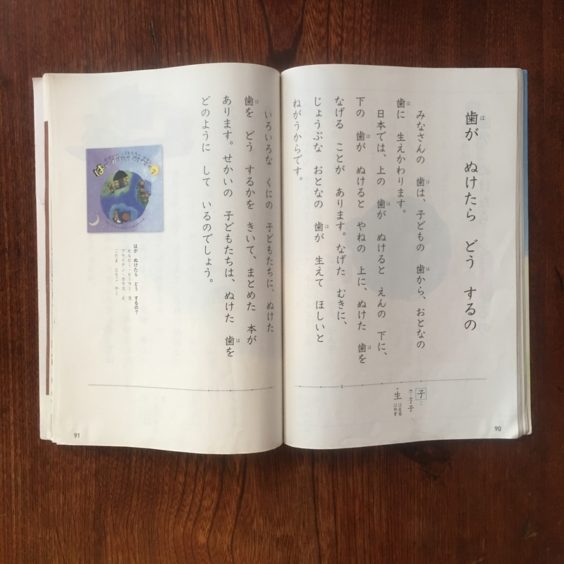 歯が ぬけたら どう するの
みなさんの 歯は、子どもの 歯から、おとなの
歯に 生えかわります。
日本では、上の 歯が ぬけると えんの 下に、
下の 歯が ぬけると やねの 上に、ぬけた 歯を
なげる ことが あります。なげた むきに、
じょうぶな おとなの 歯が 生えて ほしいと
ねがうからです。
子
生
90
いろいろな くにの 子どもたちに、ぬけた
歯を どう するかを きいて、まとめた 本が
あります。せかいの 子どもたちは、ぬけた 歯を
どのように して いるのでしょう。
はが ぬけたら どう するの?
91